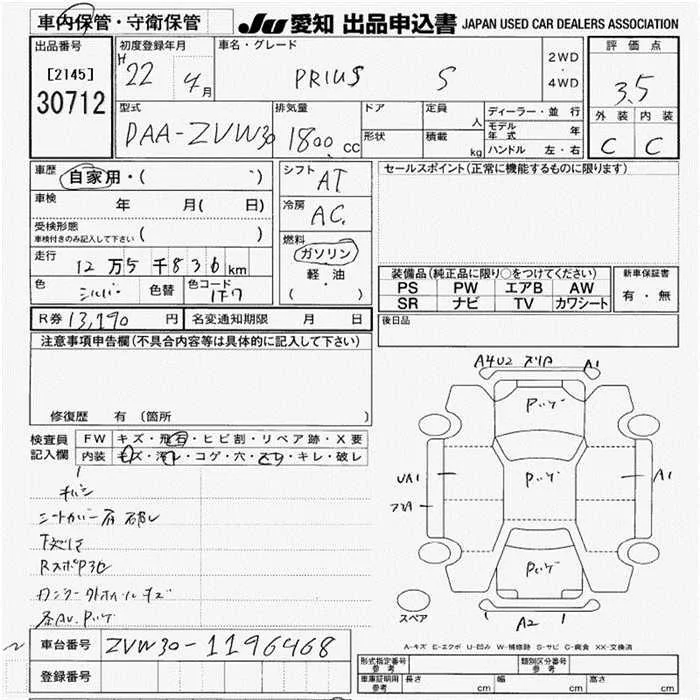 車内保管・守衛保管
JU 愛知 出品申込書 JAPAN USED CAR DEALERS ASSOCIATION
出品番号
[2145]
30712
初度登録年月
H 22 4月
車名・グレード
PRIUS S
2WD
・
4WD
評価点
3.5
外装 内装
C C
型式
DAA-ZVW30
排気量
1800 cc
ドア
形状
定員
人
積載
kg
ディーラー・並行
モデル年式 年
ハンドル 左・右
車歴
自家用・( )
車検 年 月( 日)
受検形態
車検付きのみ記入して下さい ( )
走行
12万5千836km
色
シルバー
色替
色コード
1F7
シフト
AT
冷房
AC.
燃料
ガソリン
軽・油
・
( )
セールスポイント(正常に機能するものに限ります)
装備品(純正品に限り○をつけてください)
PS PW エアB AW
SR ナビ TV カワシート
新車保証書
有・無
R券 13,190円
名変通知期限 月 日
後日品
注意事項申告欄(不具合内容等は具体的に記入して下さい)
修復歴 有(箇所 )
検査員
記入欄
FW キズ・飛石・ヒビ割・リペア跡・X要
内装 キズ・汚レ・コゲ・穴・スレ・キレ・破レ
シートカバー
下廻りキズ
RスポP30
A4U2 スリキズ A1
Pいげ
UA1
Pいげ
A1
Pいげ
A2
スペア
車台番号
ZVW30-1196468
登録番号
A-キズ E-エクボ U-凹み W-補修跡 S-サビ C-腐食 XX-交換済
形式指定番号
参考
類別区分番号
参考
車庫証明用
参考
長さ cm
幅 cm
高さ cm